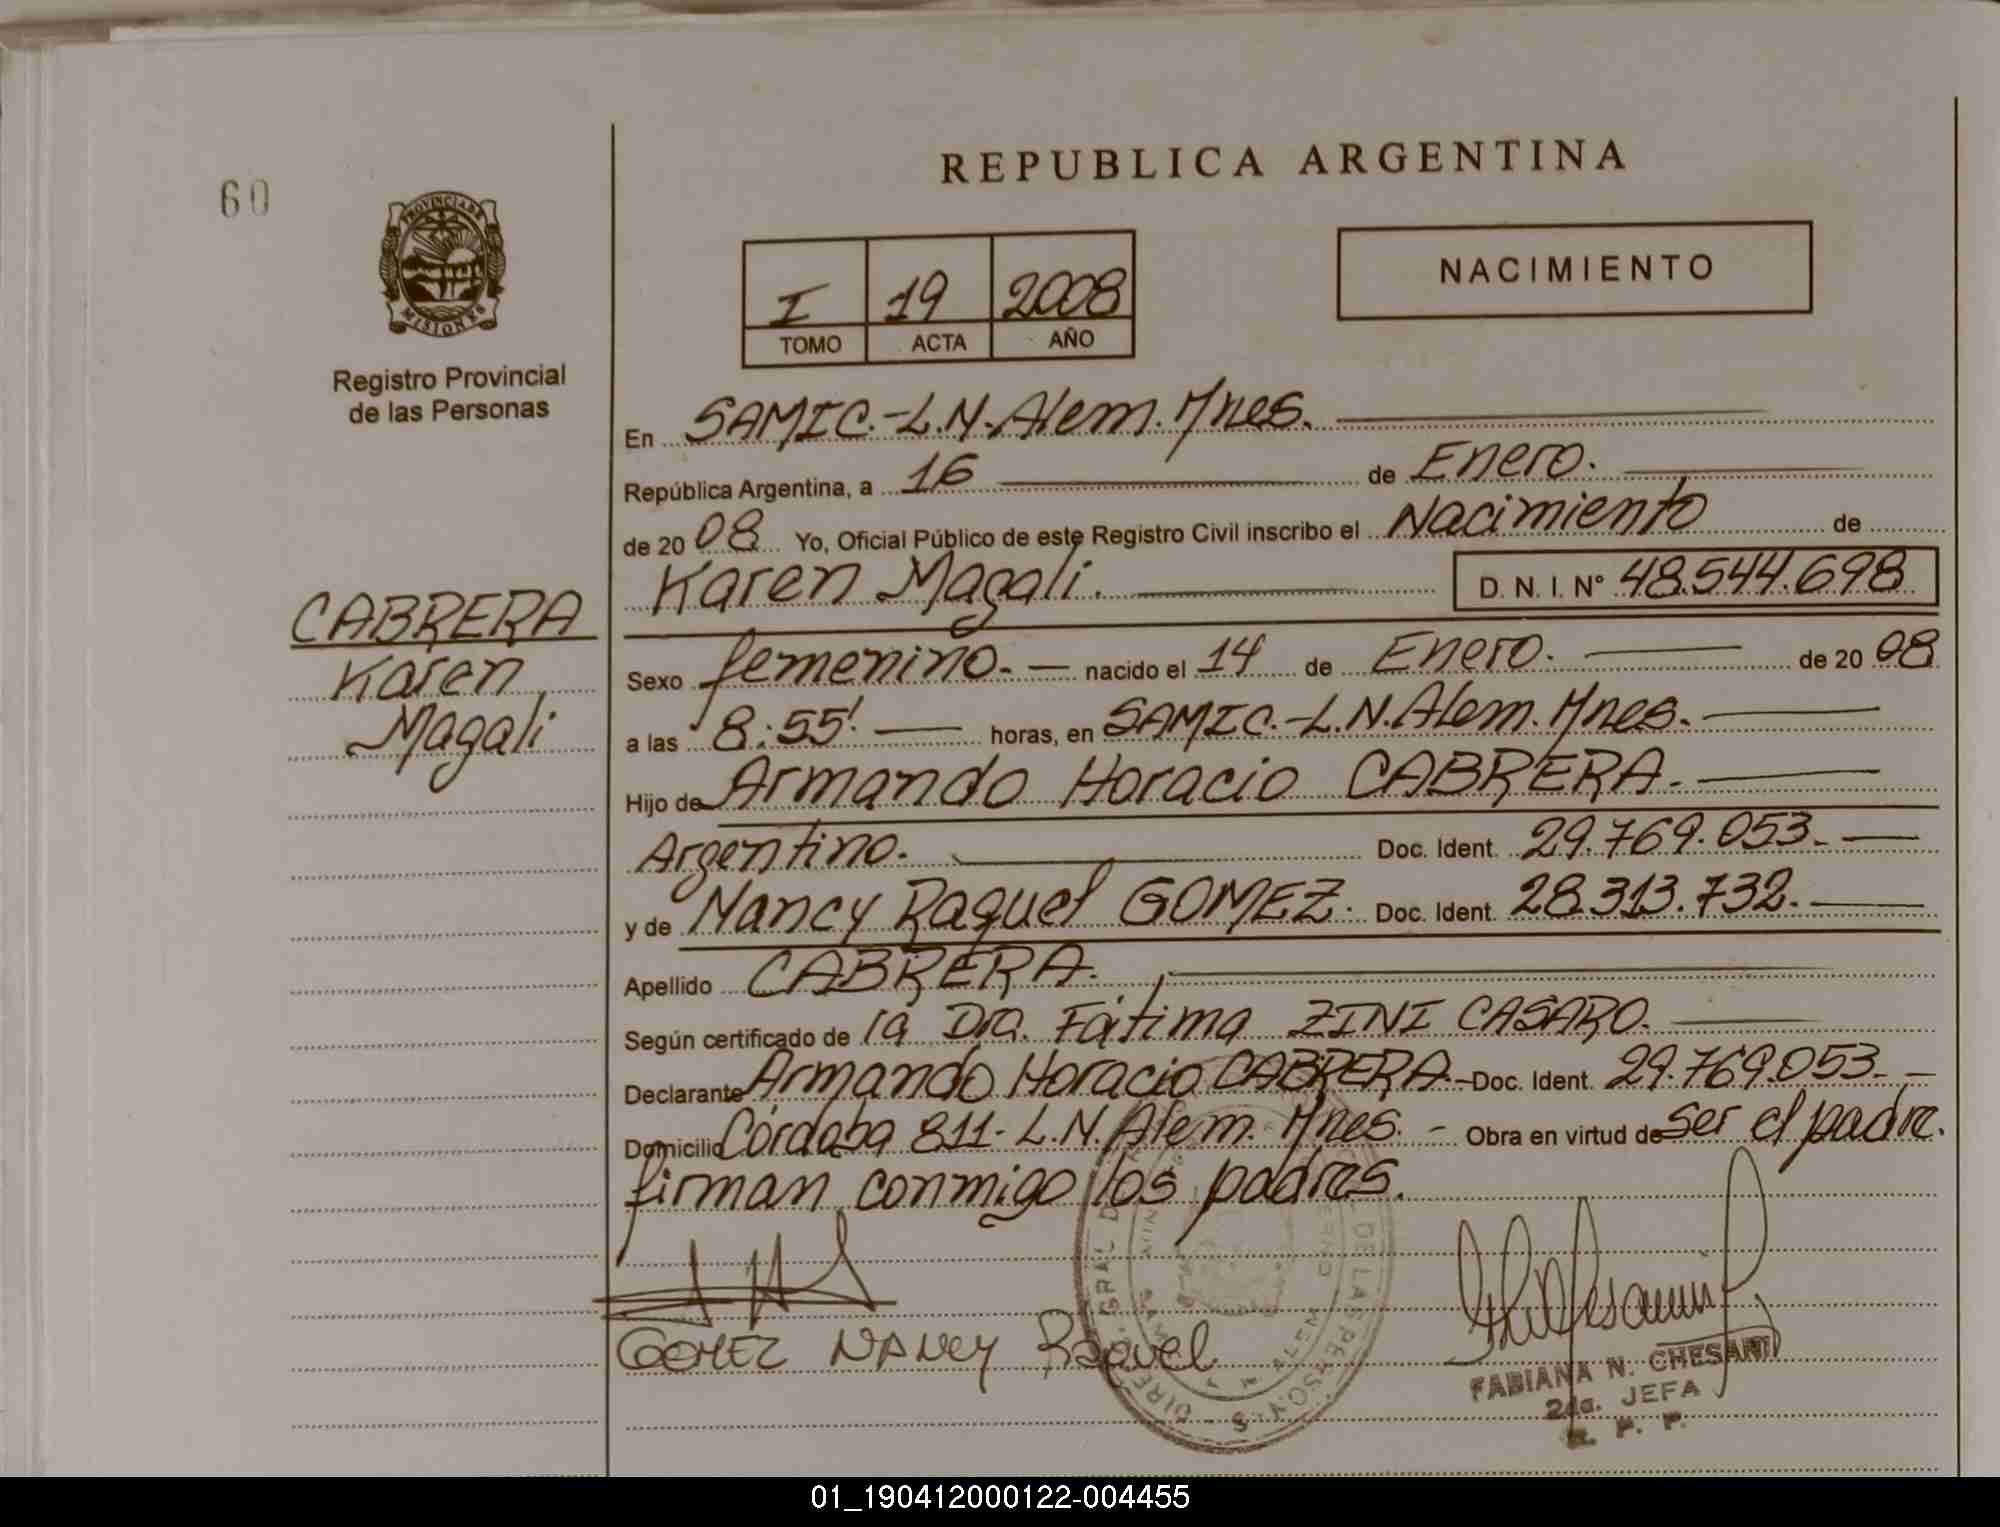 60
PROVINCIA DE
MISIONES
Registro Provincial
de las Personas
REPUBLICA ARGENTINA
I 19 2008
TOMO ACTA AÑO
NACIMIENTO
En SAMIC.-L.N.Alem.Mnes.
República Argentina, a 16 de Enero.
de 20 08 Yo, Oficial Público de este Registro Civil inscribo el Nacimiento de
Karen Magali. D. N. I. N° 48.544.698
CABRERA
Karen
Magali
Sexo femenino.- nacido el 14 de Enero. de 20 08
a las 8:55'. horas, en SAMIC.-L.N.Alem.Mnes.
Hijo de Armando Horacio CABRERA.
Argentino. Doc. Ident. 29.769.053.
y de Nancy Raquel GOMEZ. Doc. Ident. 28.313.732.
Apellido CABRERA.
Según certificado de la Dra. Fátima ZINI CASARO.
Declarante Armando Horacio CABRERA.-Doc. Ident. 29.769.053.
Domicilio Córdoba 811- L.N.Alem. Mnes. - Obra en virtud de ser el padre.
firman conmigo los padres.
GOMEZ NANCY Raquel
FABIANA N. CHESANI
2da. JEFA
R. P. P.
01_190412000122-004455